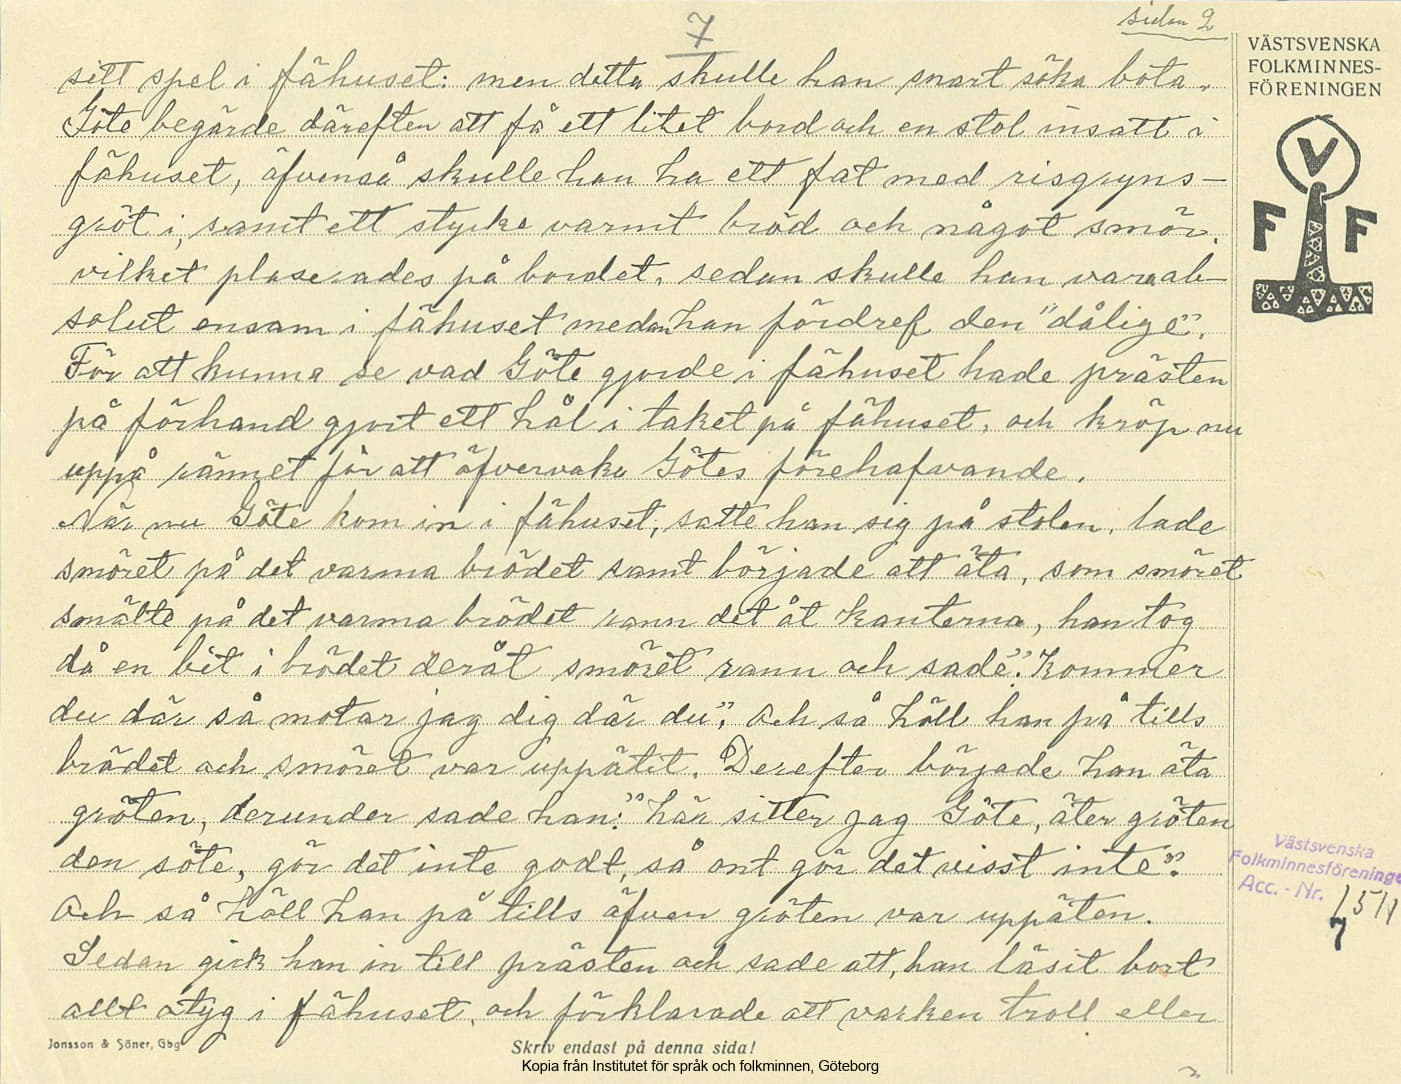 sidan 2
7
VÄSTSVENSKA
FOLKMINNES-
FÖRENINGEN
V
F F
sitt spel i fähuset: men detta skulle han snart söka bota.
Göte begärde därefter att få ett litet bord och en stol insatt i
fähuset, äfvenså skulle han ha ett fat med risgryns-
gröt i, samt ett stycke varmt bröd och något smör.
vilket plaserades på bordet, sedan skulle han vara ab-
solut ensam i fähuset medan han fördref den "dålige".
För att kunna se vad Göte gjorde i fähuset hade prästen
på förhand gjort ett hål i taket på fähuset, och kröp nu
uppå rännet för att äfvervaka Götes förehafvande.
När nu Göte kom in i fähuset, satte han sig på stolen, lade
smöret på det varma brödet samt började att äta, som smöret
smälte på det varma brödet rann det åt kanterna, han tog
då en bit i brödet deråt smöret rann och sade: "Kommer
du där så motar jag dig där du", Och så höll han på tills
brödet och smöret var uppätit. Derefter började han äta
gröten, derunder sade han: "här sitter jag Göte, äter gröten
den söte, gör det inte godt, så ont gör det visst inte".
Och så höll han på tills äfven gröten var uppäten.
Sedan gick han in till prästen och sade att, han läsit bort
allt otyg i fähuset, och förklarade att varken troll eller
Västsvenska
Folkminnesföreningen
Acc. - Nr. 1511
7
Jonsson & Söner, Gbg
Skriv endast på denna sida!
Kopia från Institutet för språk och folkminnen, Göteborg